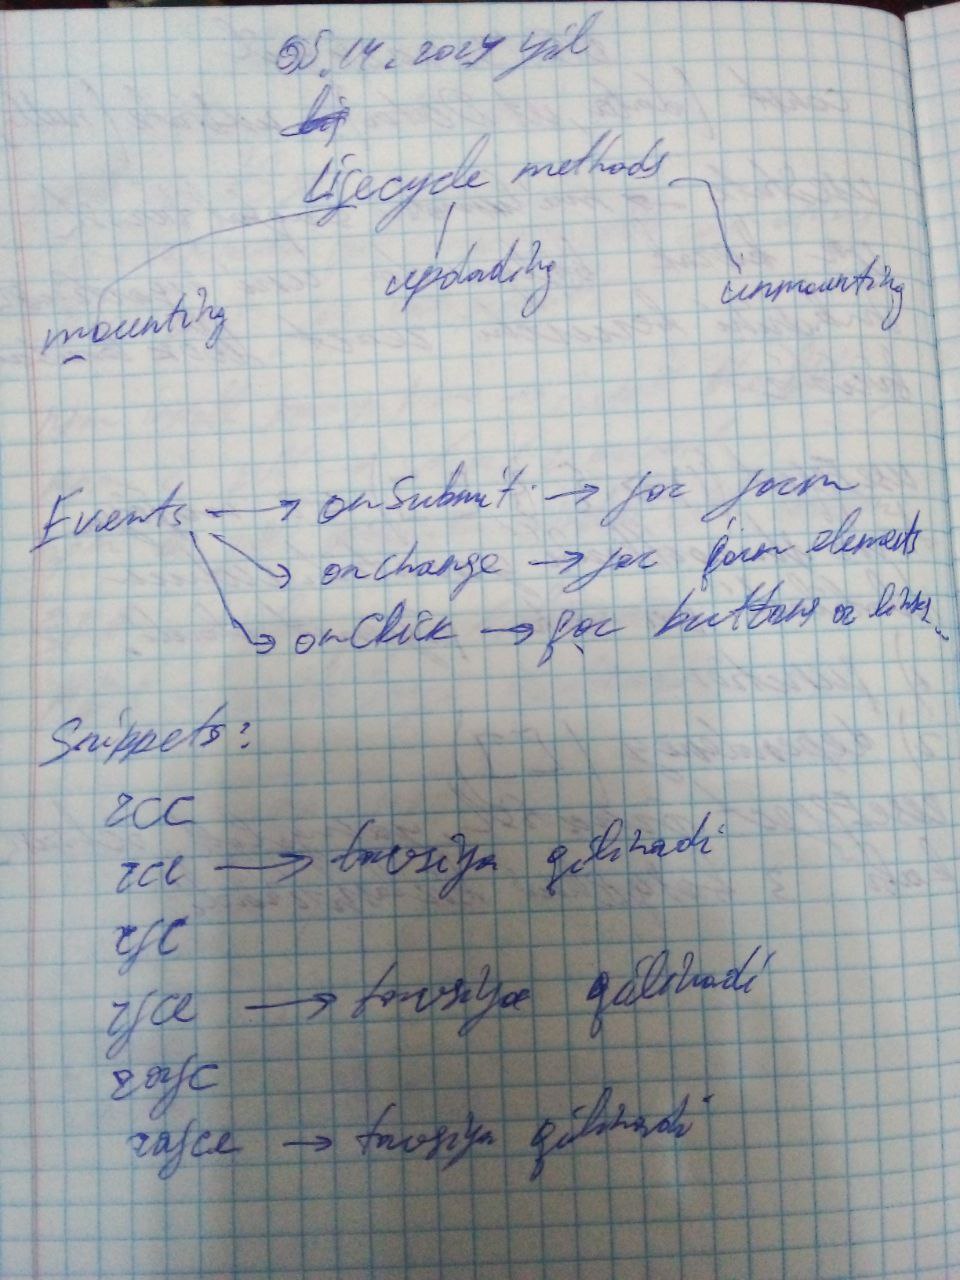 05.14.2024 yil
Lifecycle methods
mounting updading unmounting
Events → onSubmit → for form
→ onchange → for form elements
→ onClick → for buttons or links
Snippets:
rcc
rce → tavsiya qilinadi
rfc
rfce → tavsiya qilinadi
rafc
rafce → tavsiya qilinadi